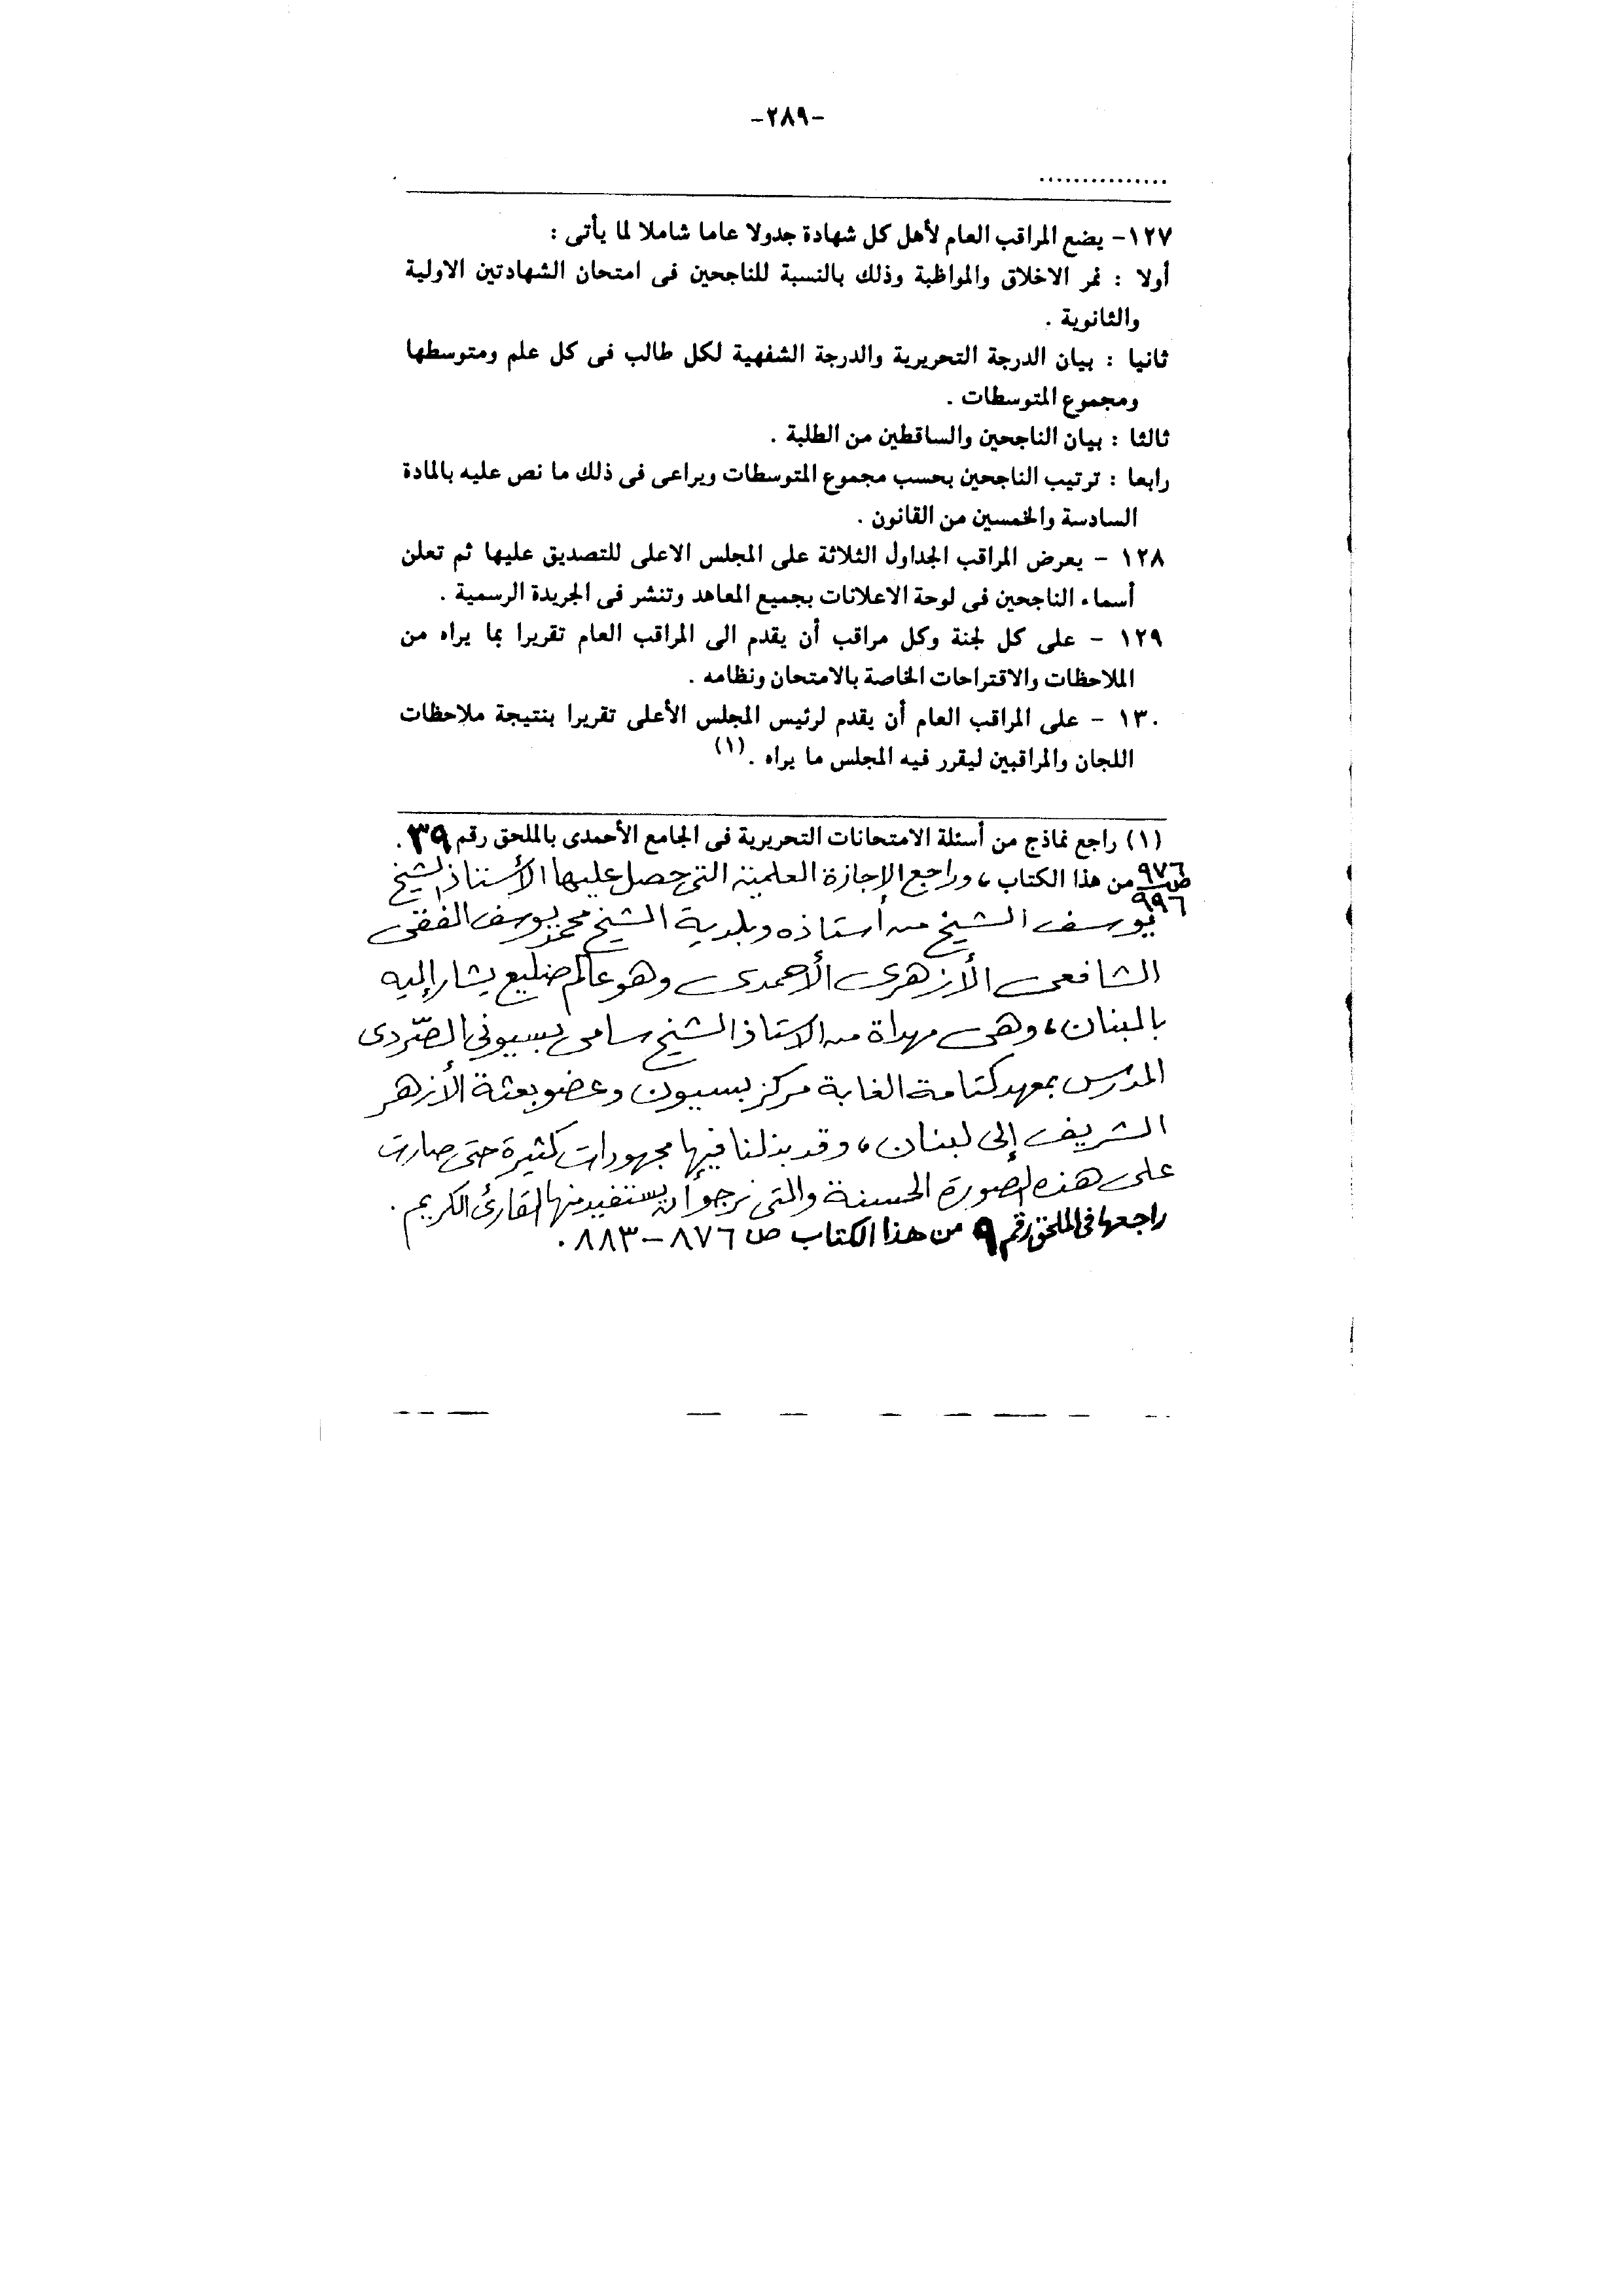 -٢٨٩-
...............
١٢٧- يضع المراقب العام لأهل كل شهادة جدولا عاما شاملا لما يأتى :
أولا : نمر الاخلاق والمواظبة وذلك بالنسبة للناجحين فى امتحان الشهادتين الاولية
والثانوية .
ثانيا : بيان الدرجة التحريرية والدرجة الشفهية لكل طالب فى كل علم ومتوسطها
ومجموع المتوسطات .
ثالثا : بيان الناجحين والساقطين من الطلبة .
رابعا : ترتيب الناجحين بحسب مجموع المتوسطات ويراعى فى ذلك ما نص عليه بالمادة
السادسة والخمسين من القانون .
١٢٨ - يعرض المراقب الجداول الثلاثة على المجلس الاعلى للتصديق عليها ثم تعلن
أسماء الناجحين فى لوحة الاعلانات بجميع المعاهد وتنشر فى الجريدة الرسمية .
١٢٩ - على كل لجنة وكل مراقب أن يقدم الى المراقب العام تقريرا بما يراه من
الملاحظات والاقتراحات الخاصة بالامتحان ونظامه .
١٣٠ - على المراقب العام أن يقدم لرئيس المجلس الأعلى تقريرا بنتيجة ملاحظات
اللجان والمراقبين ليقرر فيه المجلس ما يراه . (١)
(١) راجع نماذج من أسئلة الامتحانات التحريرية فى الجامع الأحمدى بالملحق رقم ٣٩ .
ص ٩٧٦ ٩٩٦ من هذا الكتاب ، وراجع الإجازة العلمية التى حصل عليها الأستاذ الشيخ
يوسف الشيخ من أستاذه وبلدية الشيخ محمد يوسف الفقى
الشافعى الأزهرى الأحمدى وهو عالم ضليع يشار إليه
بالبنان ، وهى مهداة من الاستاذ الشيخ سامى بسيونى الصّردى
المدرس بمعهد كتامة الغابة مركز بسيون وعضو بعثة الأزهر
الشريف إلى لبنان ، وقد بذلنا فيها مجهودات كثيرة حتى صارت
على هذه الصورة الحسنة والتى نرجو أن يستفيد منها القارئ الكريم .
راجعها فى الملحق رقم ٩ من هذا الكتاب ص ٨٧٦ - ٨٨٣ .